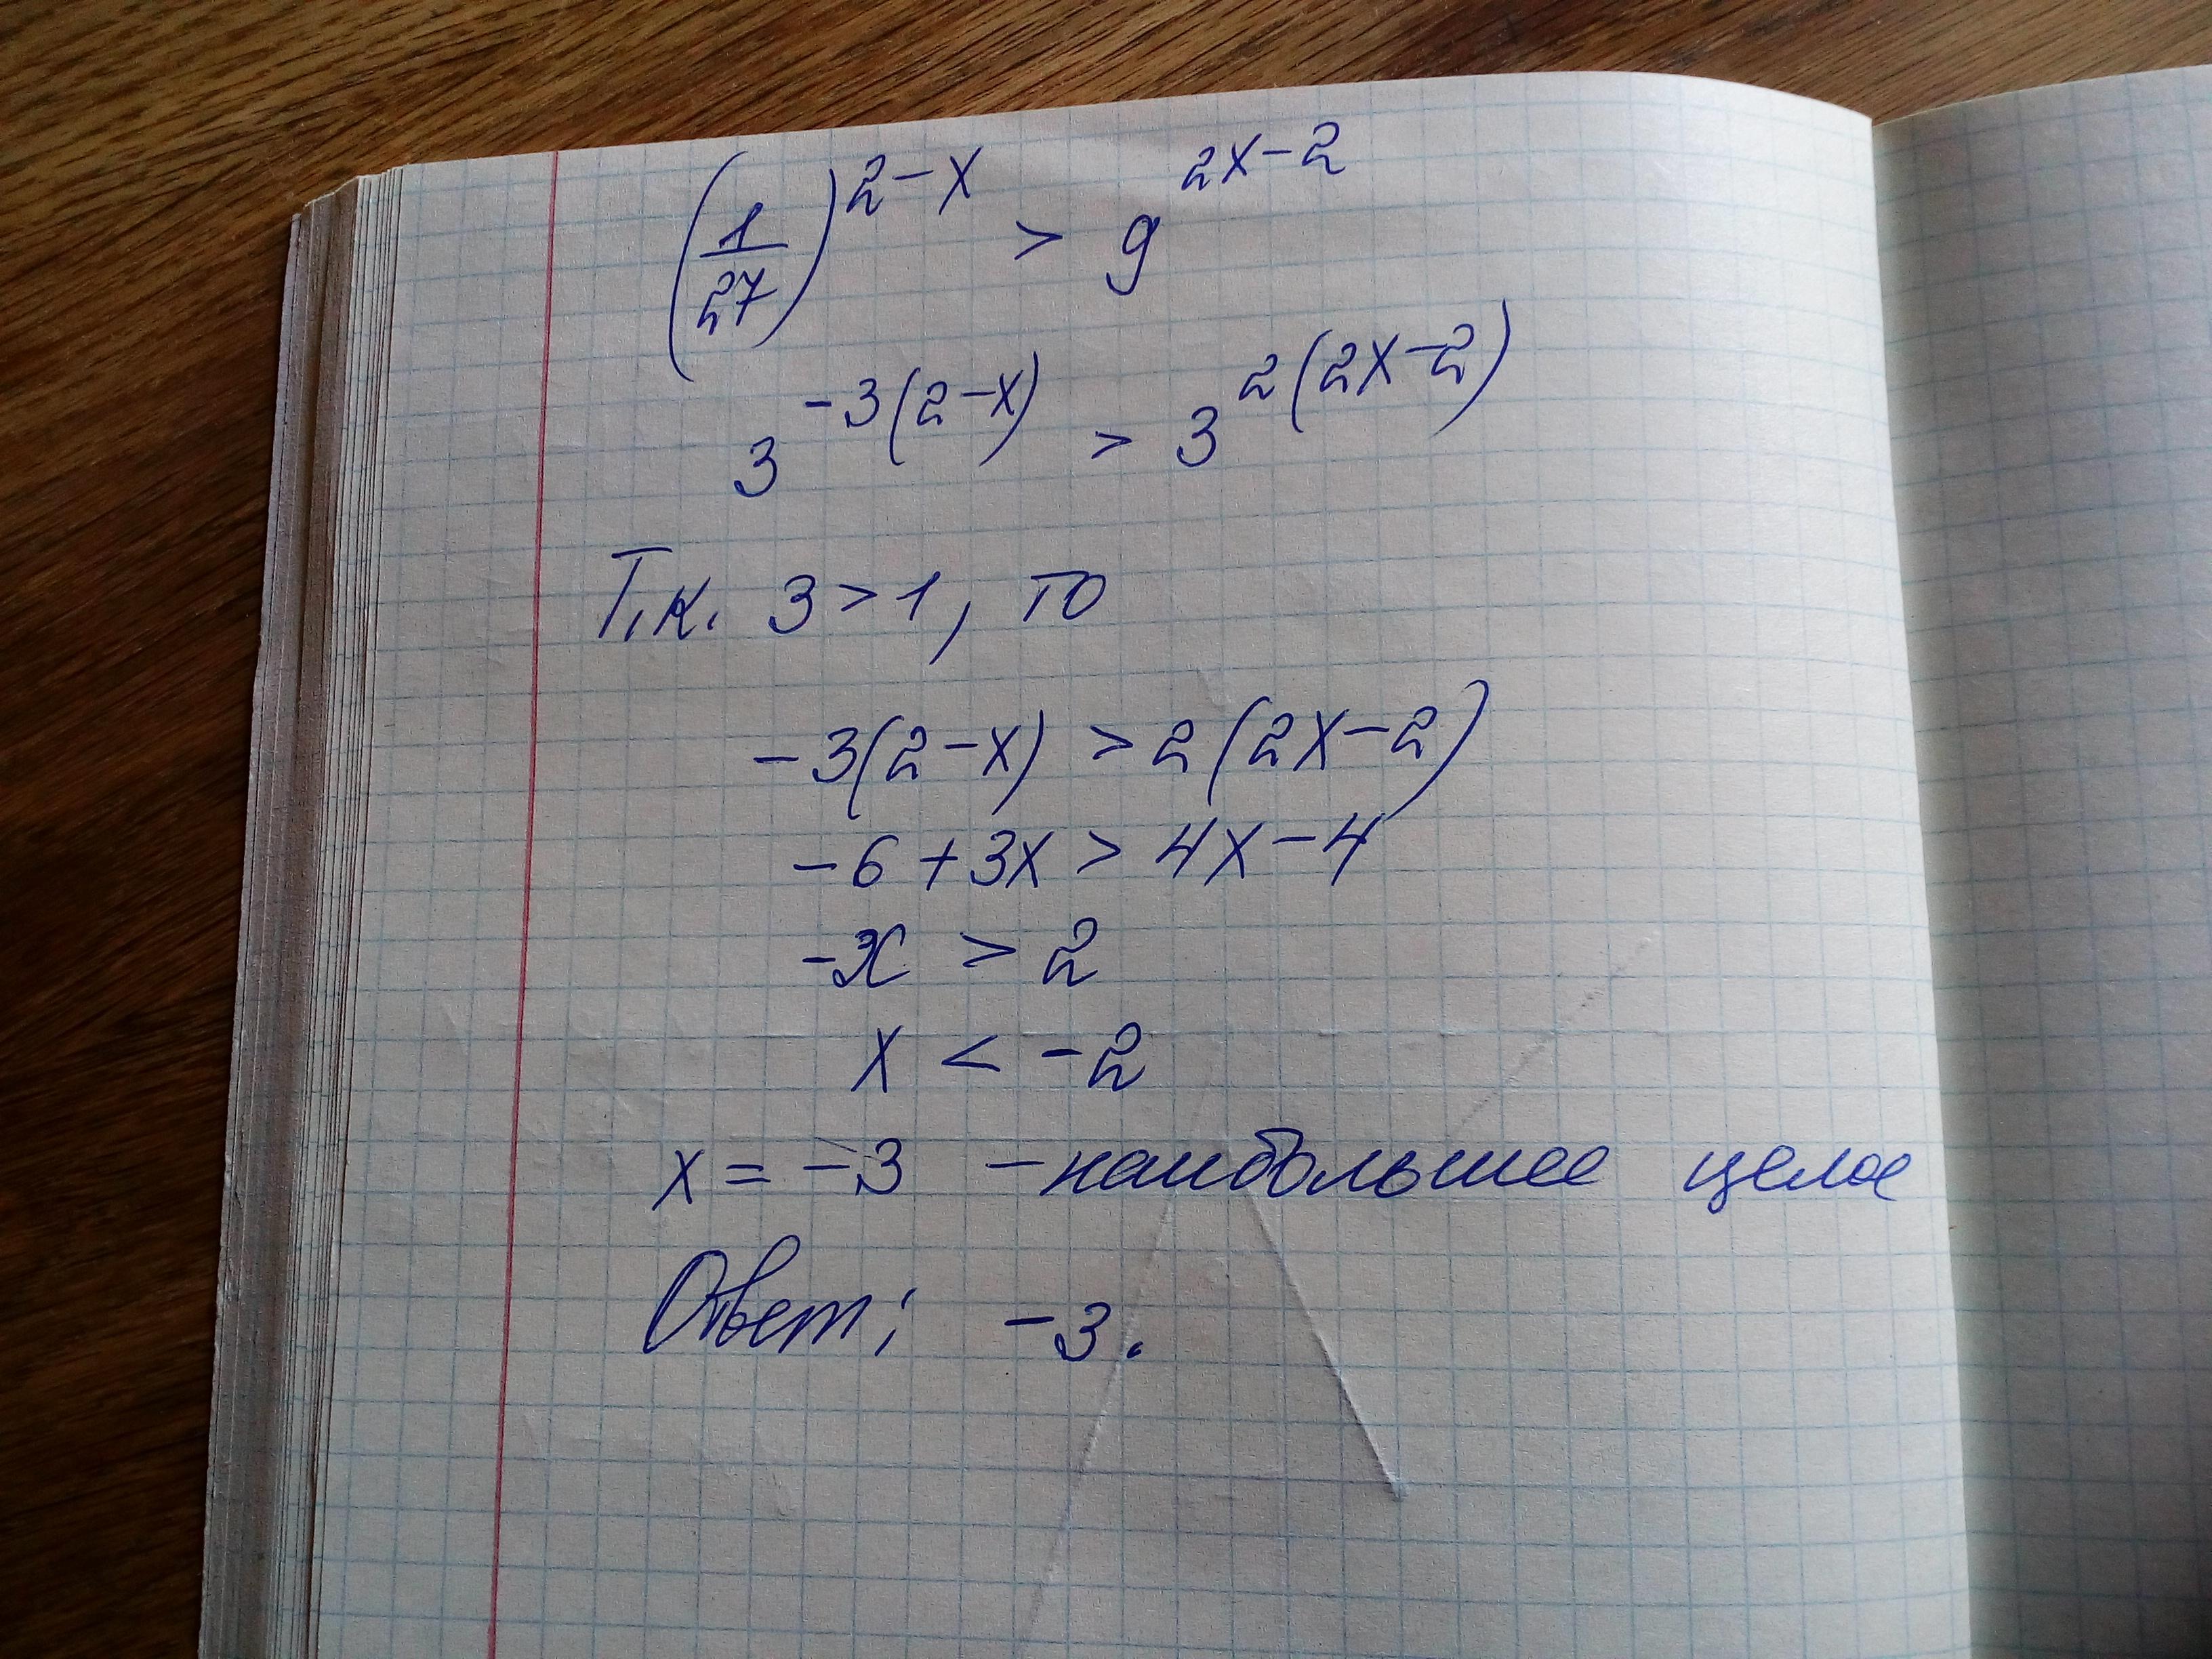 (1/27)^(2-x) > 9^(2x-2)
3^(-3(2-x)) > 3^(2(2x-2))
Т.к. 3>1, то
-3(2-x) > 2(2x-2)
-6+3x > 4x-4
-x > 2
x < -2
x = -3 - наибольшее целое
Ответ: -3.